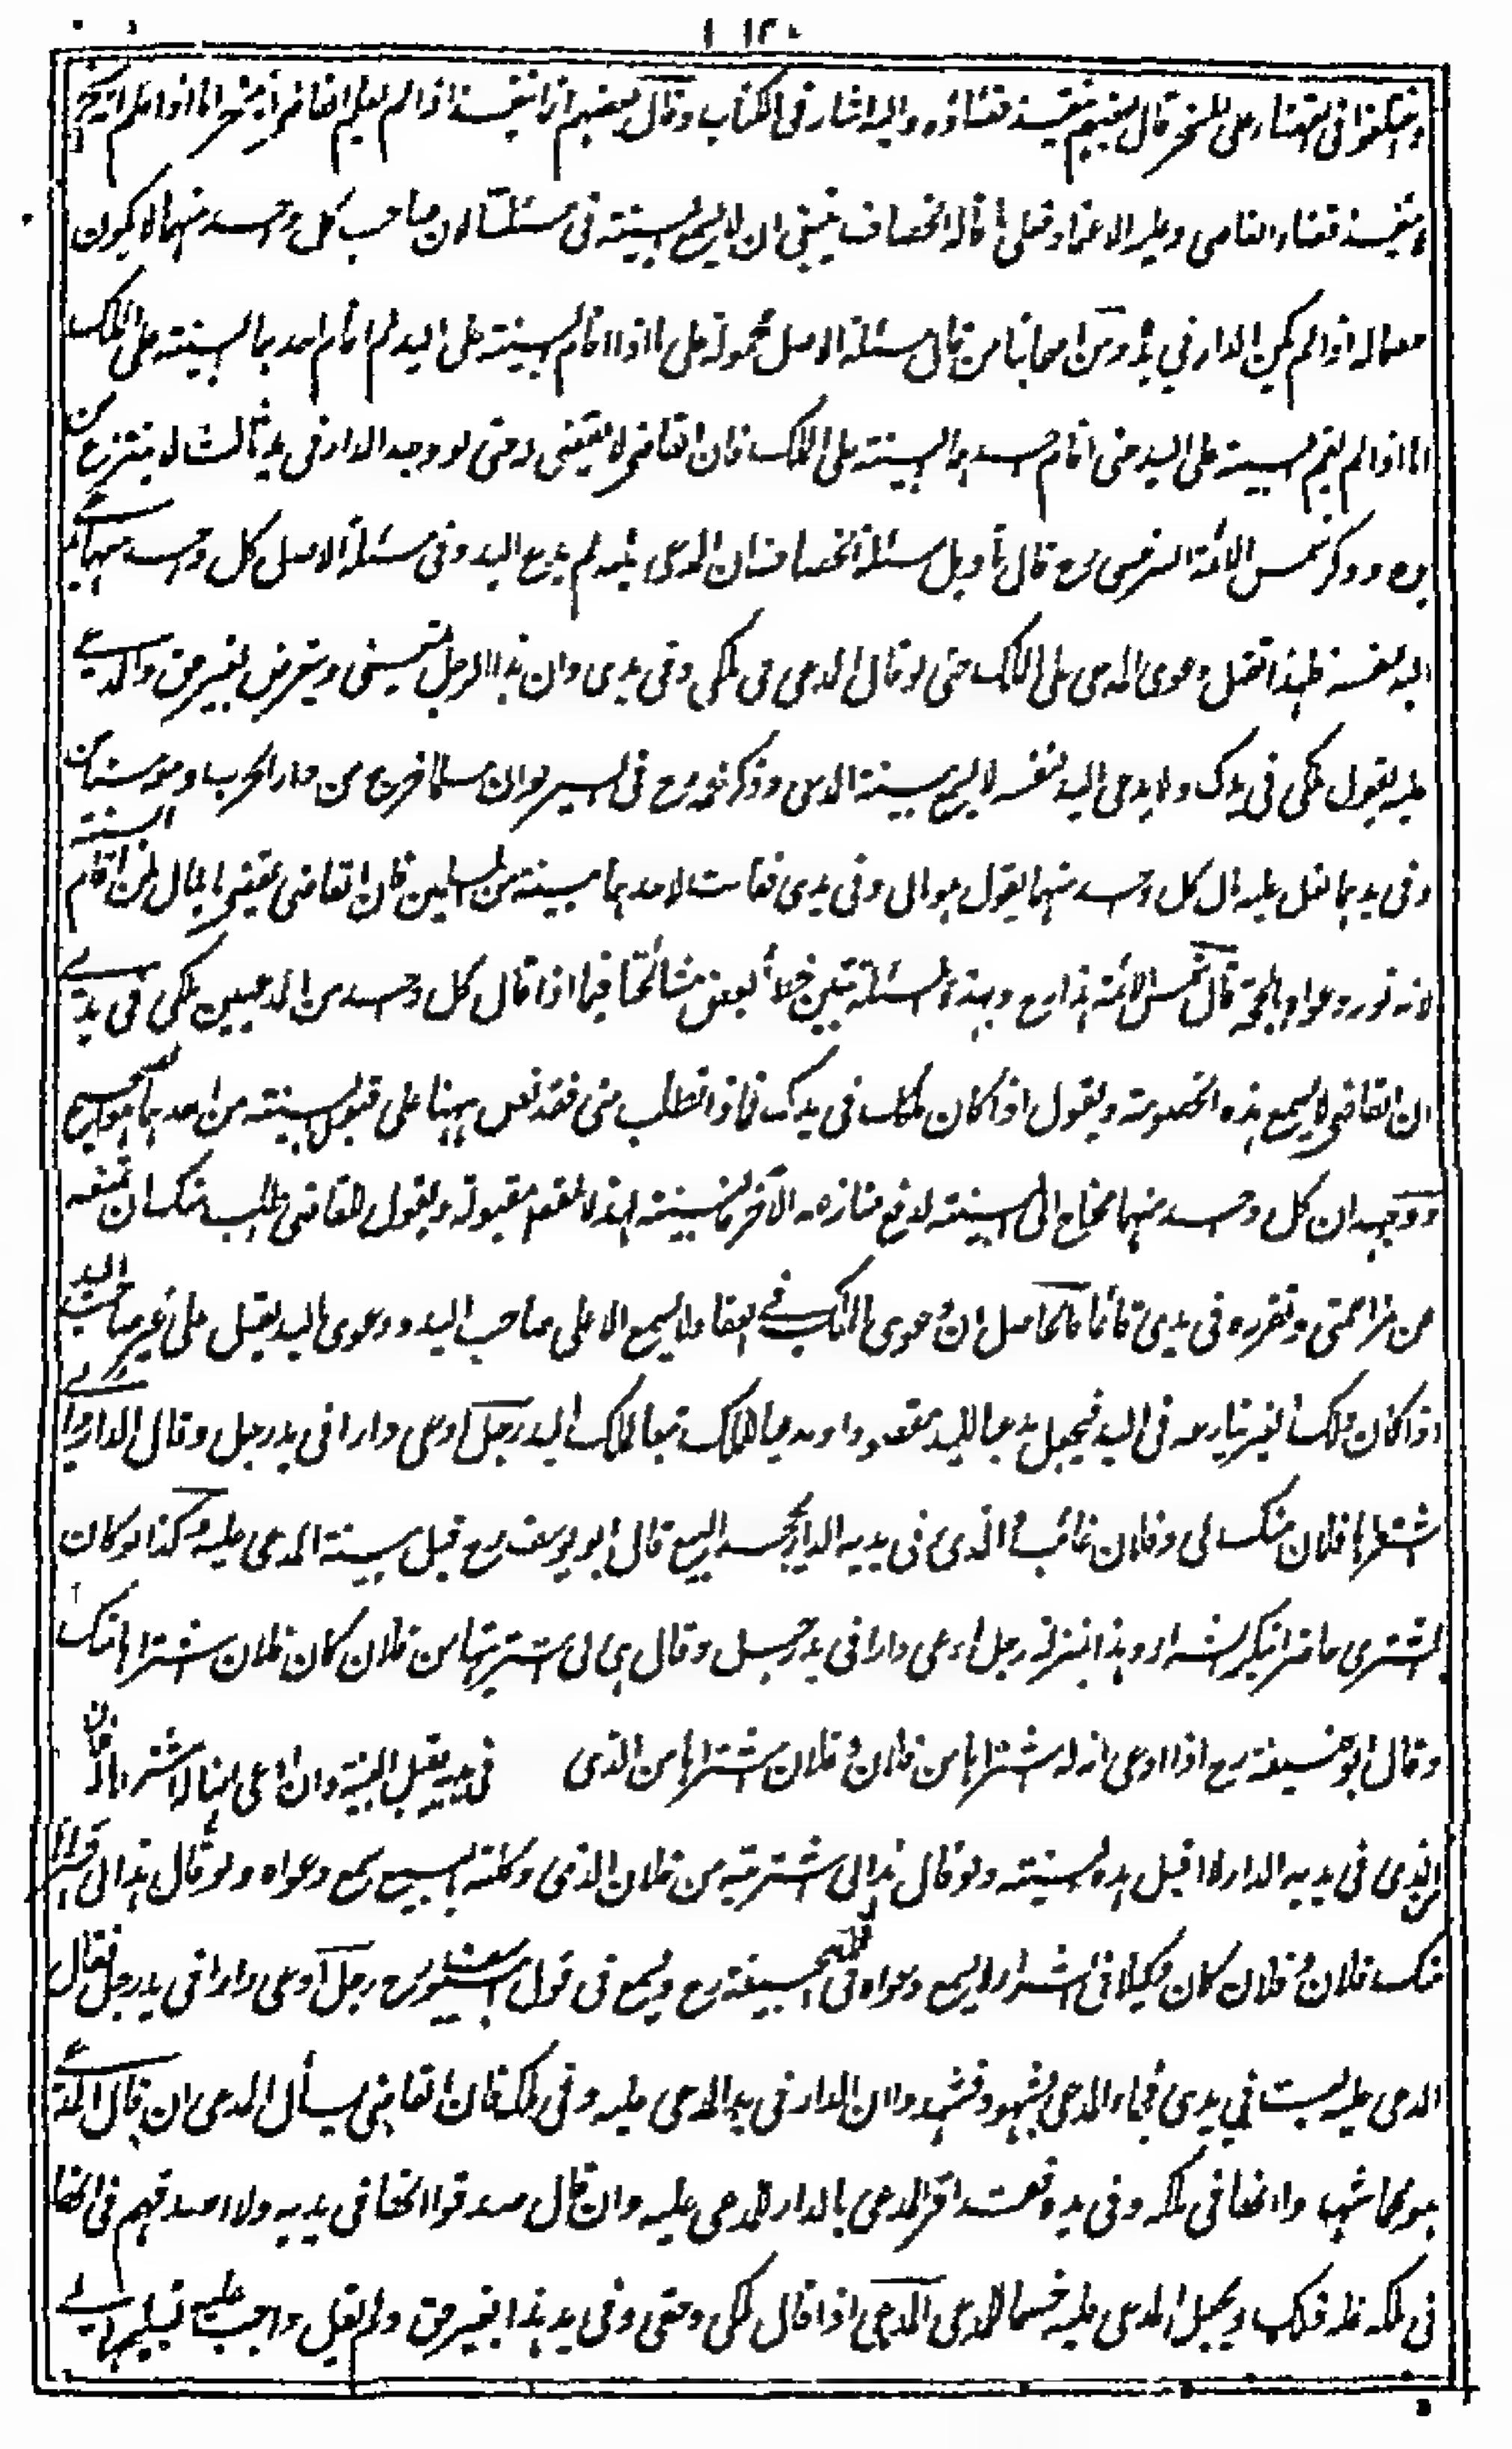 ١١٢٠
واختلفوا فى القضاء على المسخر قال بعضهم ينفذ قضاؤه واليه اشار فى الكتاب وقال بعضهم انما ينفذ اذا لم يعلم القاضى انه مسخر اما اذا علم انه مسخر
لا ينفذ قضاء القاضى وعليه الاعتماد فعلى ما قاله الخصاف ينبغى ان لا يسمع البينة فى مسئلتنا لان صاحب كل واحد منهما لا يكون
خصما له اذا لم يكن الدار فى يده ومن اصحابنا من قال مسئلة الاصل محمولة على ما اذا اقام البينة على اليد ثم اقام احدهما البينة على الملك
اما اذا لم يقم البينة على اليد حتى اقام احدهما البينة على الملك فان القاضى لا يقضى له حتى لو وجد الدار فى يد ثالث لا ينتزع من
يده وذكر شمس الائمة السرخسى رح قال تأويل مسئلة الخصاف ان المدعى عليه لم يدع اليد وفى مسئلة الاصل كل واحد منهما يدعى
اليد لنفسه فلهذا تقبل دعوى المدعى على الملك حتى لو قال المدعى هى ملكى وفى يدى وان هذا الرجل يمنعنى ويتعرض بغير حق والمدعى
عليه يقول ملكى فى يدك ولا يدعى اليد لنفسه لا يسمع بينة المدعى وذكر محمد رح فى السير لو ان مسلما خرج من دار الحرب ومعه مستأمن
وفى يدهما بغل عليه مال كل واحد منهما يقول هو لى وفى يدى فقامت لاحدهما بينة من المسلمين فان القاضى يقضى بالمال لمن اقام البينة
لانه نور دعواه بالحجة قال شمس الائمة هذا رح وبهذه المسئلة تبين خطأ بعض مشائخنا فيما اذا قال كل واحد من المدعيين ملكى فى يدى
ان القاضى لا يسمع هذه الخصومة ويقول اذا كان ملكك فى يدك فماذا تطلب منى فقد نص ههنا على قبول البينة من احدهما وهو الصحيح
ووجهه ان كل واحد منهما محتاج الى البينة لدفع منازعة الآخر فالبينة لهذا المقصد مقبولة ويقول للقاضى اطلب منك ان تمنعه
من مزاحمتى وتقرره فى يدى قائما فالحاصل ان دعوى الملك فى العقار لا يسمع الا على صاحب اليد ودعوى اليد يقبل على غير صاحب اليد
اذا كان ذلك الغير ينازعه فى اليد فيجعل مدعيا لليد مقصودا ومدعيا للملك تبعا لملك اليد رجل ادعى دارا فى يد رجل وقال الدار دارى
اشتراها فلان منك لى وفلان غائب والذى فى يديه الدار يجحد البيع قال ابو يوسف رح تقبل بينة المدعى عليه وكذا لو كان
المشترى حاضرا ينكر الشراء وهذا بمنزلة رجل ادعى دارا فى يد رجل وقال هى لى اشتريتها من فلان كان فلان اشتراها منك
وقال ابو حنيفة رح اذا ادعى انه له اشتراها من فلان وفلان اشتراها من الذى فى يديه يقبل البينة وان ادعى ان فلانا اشتراها له
من الذى فى يديه الدار لا اقبل هذه البينة ولو قال هذا لى اشتريته من فلان الذى وكلته بالبيع يسمع دعواه ولو قال هذا لى اشتراه
منك فلان وفلان كان وكيلا فى الشراء لا يسمع دعواه فى قول ابى حنيفة رح ويسمع فى قول ابى يوسف رح رجل ادعى دارا فى يد رجل فقال
المدعى عليه ليست فى يدى فجاء المدعى بشهود فشهدوا ان الدار فى يد المدعى عليه وفى ملكه فان القاضى يسأل المدعى ان قال المدعى
هو كما شهدوا انها فى ملكه وفى يده فقد اقر المدعى بالدار للمدعى عليه وان قال صدقوا انها فى يديه ولا اصدقهم فى انها
فى ملكه فله ذلك ويجعل المدعى عليه خصما للمدعى المدعى اذا قال ملكى وحقى وفى يد هذا بغير حق ولم يقل واجب عليه تسليمها الى